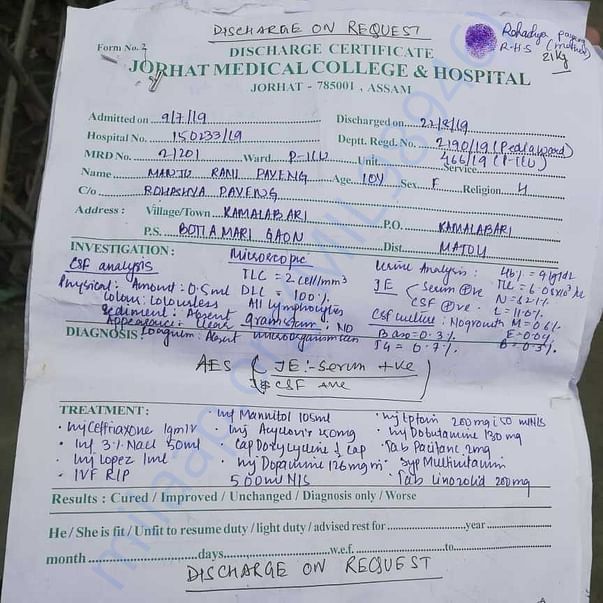 DISCHARGE ON REQUEST
Form No. 7
DISCHARGE CERTIFICATE
JORHAT MEDICAL COLLEGE & HOSPITAL
JORHAT - 785001, ASSAM
R.H.S (mother)
21 Kg
Admitted on 9/7/19 Discharged on 22/8/19
Hospital No. 150233/19 Deptt. Regd. No. 2190/19 (Pedia ward)
MRD No. 21201 Ward P-ICU Unit 466/19 (P-ICU) Service
Name MANJU RANI PAYENG Age 10Y Sex F Religion H
C/o ROHADYA PAYENG
Address : Village/Town KAMALABARI P.O. KAMALABARI
P.S. BOTIAMARI GAON Dist. MAJULI
INVESTIGATION:
CSF analysis
Physical: Amount: 0.5ml
Colour: Colourless
Sediment: Absent
Appearance: Clear
Coagulum: Absent
Microscopic
TLC = 2 cell/mm³
DLC = 100%
All lymphocytes
Gramstain: NO
microorganism
Urine Analysis:
JE Serum +ve
CSF +ve
CSF culture: No growth
Baso = 0.3%
IG = 0.7%
Hb% = 9 g/dl
N = 62.1%
L = 11.0%
M = 0.6%
E = 0.0%
DIAGNOSIS
AES JE:- Serum +ve
CSF +ve
TREATMENT:
• Inj Ceftriaxone 1gm IV
• Inf 3% Nacl 50ml
• Inj Lopez 1ml
• IVF R/P
• Inf Mannitol 105ml
• Inj Acyclovir 250mg
Cap Doxycycline 1 cap
• Inj Dopamine 126mg in
50ml N/S
• Inj Eptoin 200mg i 50 ml N/S
• Inj Dobutamine 130mg
• Tab Pacitane 2mg
• Syp Multivitamin
• Tab Linozolid 200mg
Results : Cured / Improved / Unchanged / Diagnosis only / Worse
He / She is fit / Unfit to resume duty / light duty / advised rest for year
month days w.e.f. to
DISCHARGE ON REQUEST